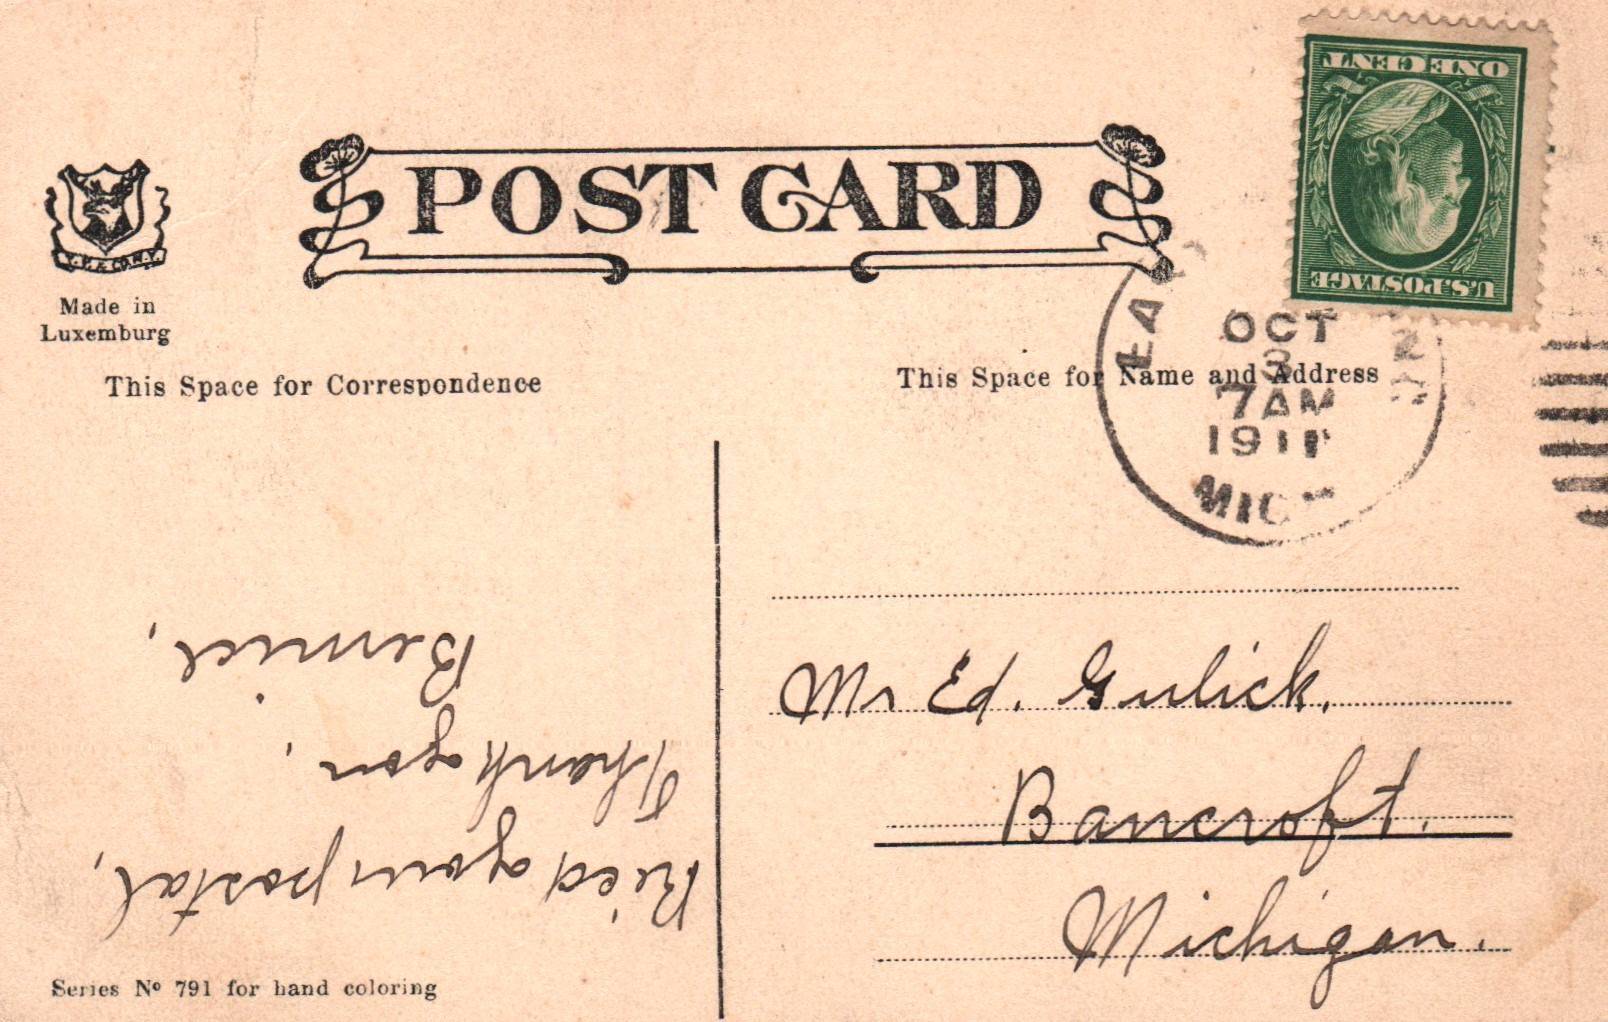 ONE CENT
U.S. POSTAGE
POST CARD
Made in
Luxemburg
OCT
3
7 AM
1911
MICH
This Space for Correspondence
This Space for Name and Address
Rièd your postal,
Thank you,
Bernice,
Mr Ed. Gulick.
Bancroft.
Michigan.
Series Nº 791 for hand coloring